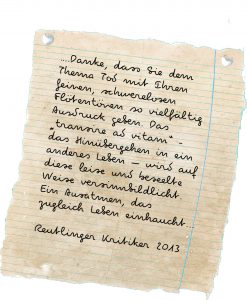 ....Danke, dass Sie dem
Thema Tod mit Ihren
feinen, schwerelosen
Flötentönen so vielfältig
Ausdruck geben. Das
"transire ad vitam" -
das Hinübergehen in ein
anderes Leben – wird auf
diese leise und beseelte
Weise versinnbildlicht.
Ein Ausatmen, das
zugleich Leben einhaucht...
Reutlinger Kritiker 2013